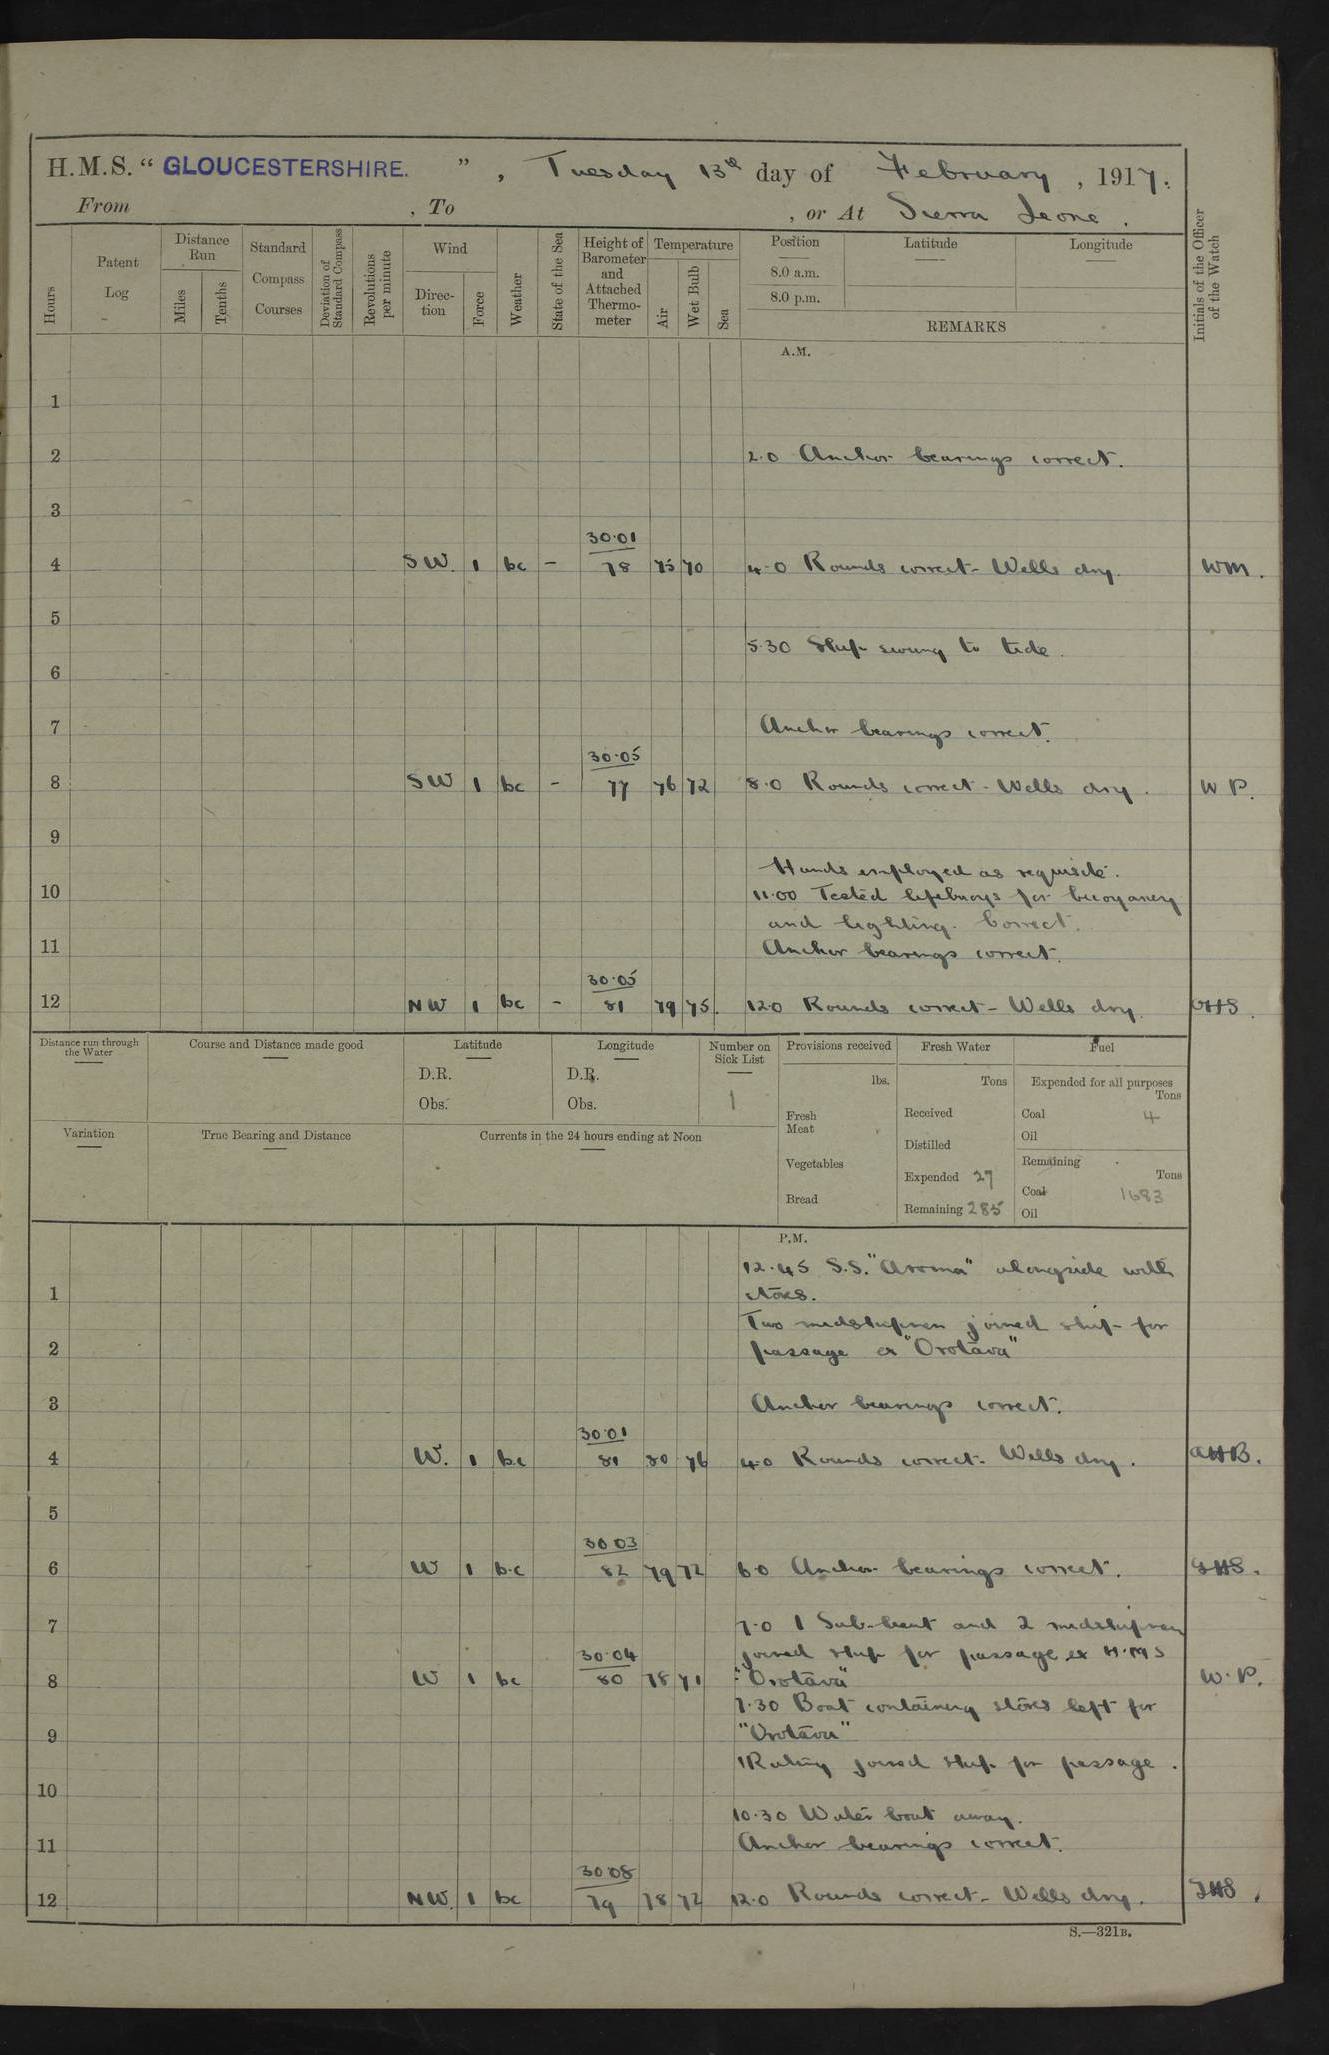 H.M.S. " GLOUCESTERSHIRE. ", Tuesday 13th day of February, 1917.
From , To , or At Sierra Leone.
Hours
Patent Log
Distance Run
Miles
Tenths
Standard Compass Courses
Deviation of Standard Compass
Revolutions per minute
Wind
Direction
Force
Weather
State of the Sea
Height of Barometer and Attached Thermometer
Temperature
Air
Wet Bulb
Sea
Position
8.0 a.m.
8.0 p.m.
Latitude
Longitude
REMARKS
Initials of the Officer of the Watch
A.M.
1
2 2.0 Anchor bearings correct.
3
30.01
4 SW. 1 bc - 78 75 70 4.0 Rounds correct - Wells dry. WM.
5
5.30 Ship swung to tide.
6
7 Anchor bearings correct.
30.05
8 SW 1 bc - 77 76 72 8.0 Rounds correct - Wells dry. W P.
9
Hands employed as requisite.
10 11.00 Tested lifebuoys for buoyancy
and lighting. Correct.
11 Anchor bearings correct.
30.05
12 NW 1 bc - 81 79 75. 12.0 Rounds correct - Wells dry.
Distance run through the Water
Course and Distance made good
Latitude
D.R.
Obs.
Longitude
D.R.
Obs.
Number on Sick List
1
Provisions received
lbs.
Fresh Meat
Vegetables
Bread
Fresh Water
Tons
Received
Distilled
Expended 27
Remaining 285
Fuel
Expended for all purposes
Tons
Coal 4
Oil
Remaining
Tons
Coal 1683
Oil
Variation
True Bearing and Distance
Currents in the 24 hours ending at Noon
P.M.
12.45 S.S. "Aroma" alongside with
1 stores.
Two midshipmen joined ship for
2 passage ex "Orotava"
3 Anchor bearings correct.
30.01
4 W. 1 bc 81 80 76 4.0 Rounds correct - Wells dry. AHB.
5
30 03
6 W 1 b.c 82 79 72 6.0 Anchor bearings correct.
7 7.0 1 Sub-Lieut and 2 midshipmen
30.04 joined ship for passage ex H.M.S
8 W 1 bc 80 78 71 "Orotava" W.P.
7.30 Boat containing stores left for
9 "Orotava"
1 Rating joined ship for passage.
10
10.30 Water boat away.
11 Anchor bearings correct.
30.08
12 NW. 1 bc 79 78 72 12.0 Rounds correct - Wells dry.
S.—321B.